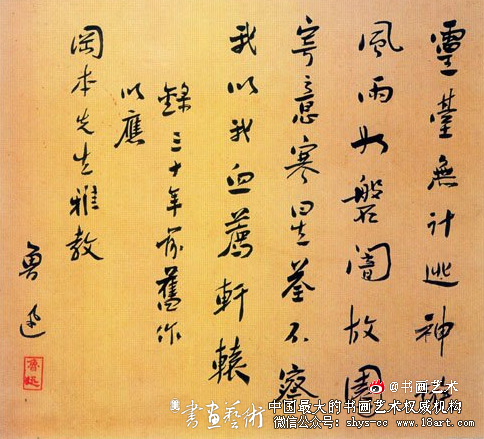 靈臺無計逃神矢
風雨如磐闇故園
寄意寒星荃不察
我以我血薦軒轅
錄三十年前舊作
以應
岡本先生雅教
魯迅
魯迅
@书画艺术
書画藝術
中国最大的书画艺术权威机构
微信公众号: shys-cc www.18art.com